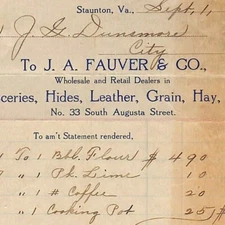 Staunton, Va., Sept, 1,
J. G. Dunsmore
City
To J. A. FAUVER & CO.,
Wholesale and Retail Dealers in
ceries, Hides, Leather, Grain, Hay,
No. 33 South Augusta Street.
To am't Statement rendered,
1 To 1 Bbl. Flour $ 4 90
" 1 Pk. Lime 10
" 1 # Coffee 20
" 1 Cooking Pot 25